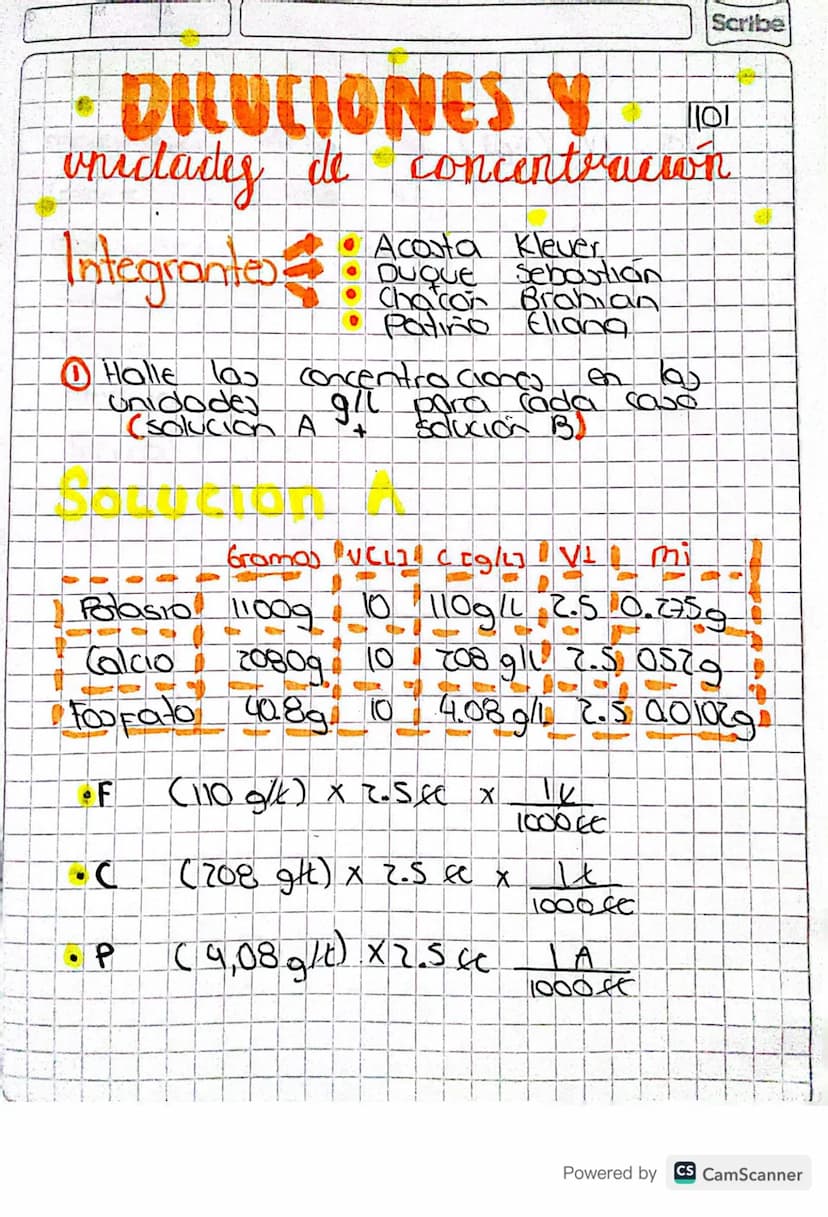 Scribe
DILUCIONES Y
1101
unidades de concentración
Integrantes
Acosta Klever
Duque Sebastián
Chacón Brahian
Patiño Eliana
① Halle las concentraciones en las
unidades g/L para cada caso
(solucion A + solución B)
SOLUCION A
Gramos V[L] C[g/L] V1 mi
Potasio 1100g 10 110g/L 2.5 0.275g
Calcio 2080g 10 208 g/L 2.5 0.52g
Fosfato 40.8g 10 4.08 g/L 2.5 0.0102g
F (110 g/L) x 2.5 cc x 1L
1000 cc
C (208 g/t) x 2.5 cc x 1t
1000 cc
P (4,08 g/t) x 2.5 cc 1A
1000 cc
Powered by CS CamScanner